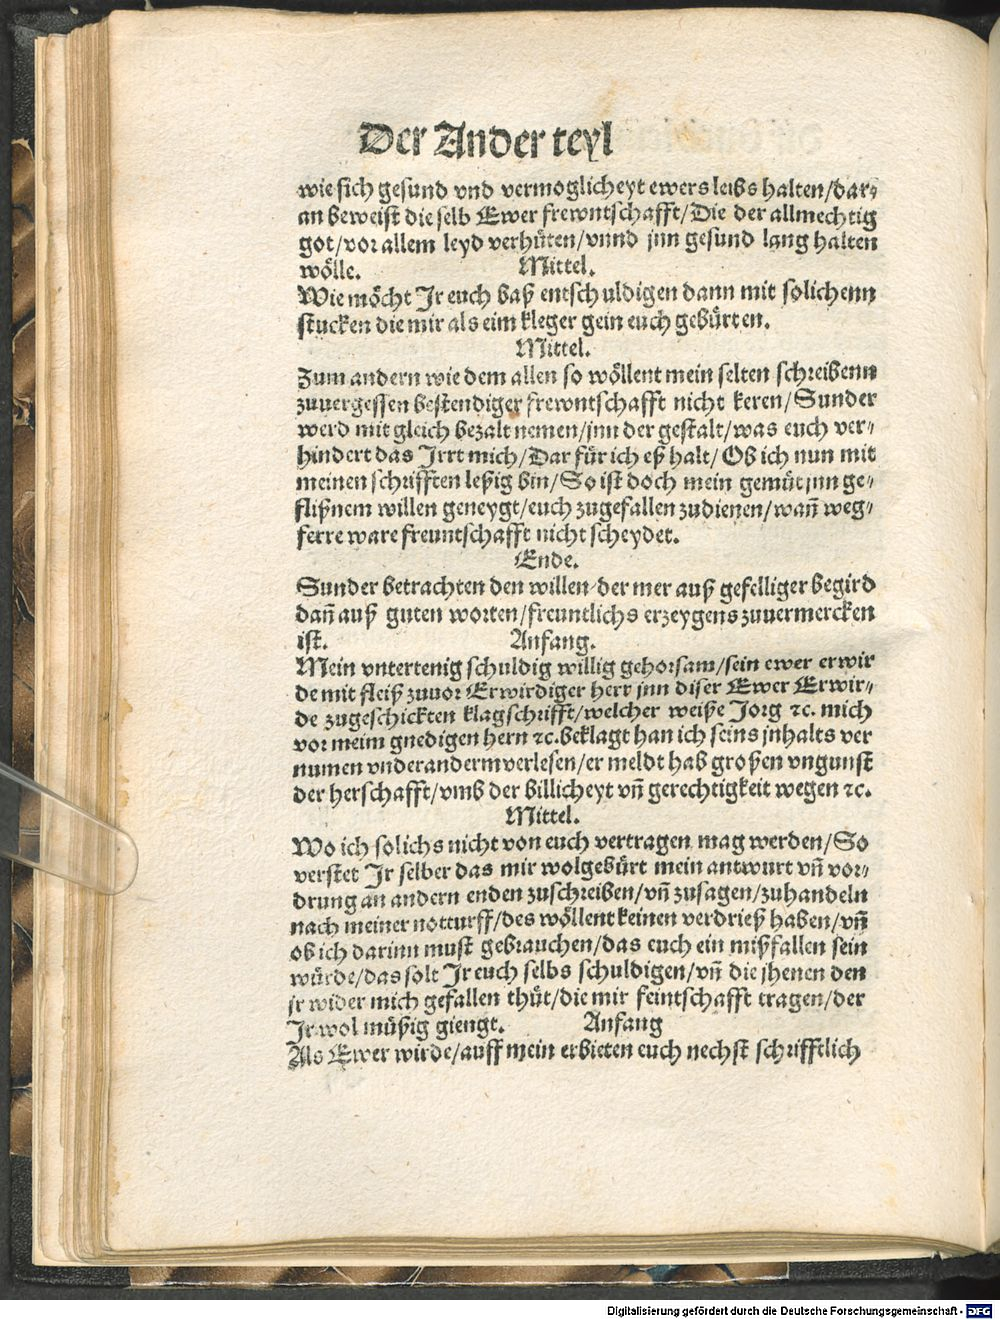 Der Ander teyl
wie sich gesund vnd vermoglicheyt ewers leibs halten/dar⸗
an beweist die selb Ewer frewntschafft/Die der allmechtig
got/vor allem leyd verhüten/vnnd jnn gesund lang halten
wölle. Mittel.
Wie möcht Jr euch baß entschuldigen dann mit solichenn
stucken die mir als eim kleger gein euch gebürten.
Mittel.
Zum andern wie dem allen so wöllent mein selten schreibenn
zuuergessen bestendiger frewntschafft nicht keren/Sunder
werd mit gleich bezalt nemen/jnn der gestalt/was euch ver⸗
hindert das Jrrt mich/Dar für ich eß halt/Ob ich nun mit
meinen schrifften leßig bin/So ist doch mein gemüt jnn ge⸗
flißnem willen geneygt/euch zugefallen zudienen/wañ weg⸗
ferre ware freuntschafft nicht scheydet.
Ende.
Sunder betrachten den willen/der mer auß gefelliger begird
dañ auß guten worten/freuntlichs erzeygens zuuermercken
ist. Anfang.
Mein vntertenig schuldig willig gehorsam/sein ewer erwir
de mit fleiß zuuor Erwirdiger herr jnn diser Ewer Erwir⸗
de zugeschickten klagschrifft/welcher weiße Jorg ꝛc. mich
vor meim gnedigen hern ꝛc. beklagt han ich seins jnhalts ver
numen vnderanderm verlesen/er meldt hab großen vngunst
der herschafft/vmb der billicheyt vñ gerechtigkeit wegen ꝛc.
Mittel.
Wo ich solichs nicht von euch vertragen mag werden/So
verstet Jr selber das mir wolgebürt mein antwurt vñ vor⸗
drung an andern enden zuschreiben/vñ zusagen/zuhandeln
nach meiner notturff/des wöllent keinen verdrieß haben/vñ
ob ich darinn must gebrauchen/das euch ein mißfallen sein
würde/das solt Jr euch selbs schuldigen/vñ die jhenen den
jr wider mich gefallen thüt/die mir feintschafft tragen/der
Jr wol müßig giengt. Anfang
Als Ewer wirde/auff mein erbieten euch nechst schrifftlich
Digitalisierung gefördert durch die Deutsche Forschungsgemeinschaft - DFG